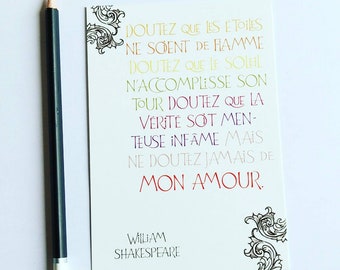 DOUTEZ QUE LES ETOILES
NE SOIENT DE FLAMME
DOUTEZ QUE LE SOLEIL
N'ACCOMPLISSE SON
TOUR DOUTEZ QUE LA
VÉRITÉ SOIT MEN-
TEUSE INFÂME MAIS
NE DOUTEZ JAMAIS DE
MON AMOUR.
WILLIAM
SHAKESPEARE